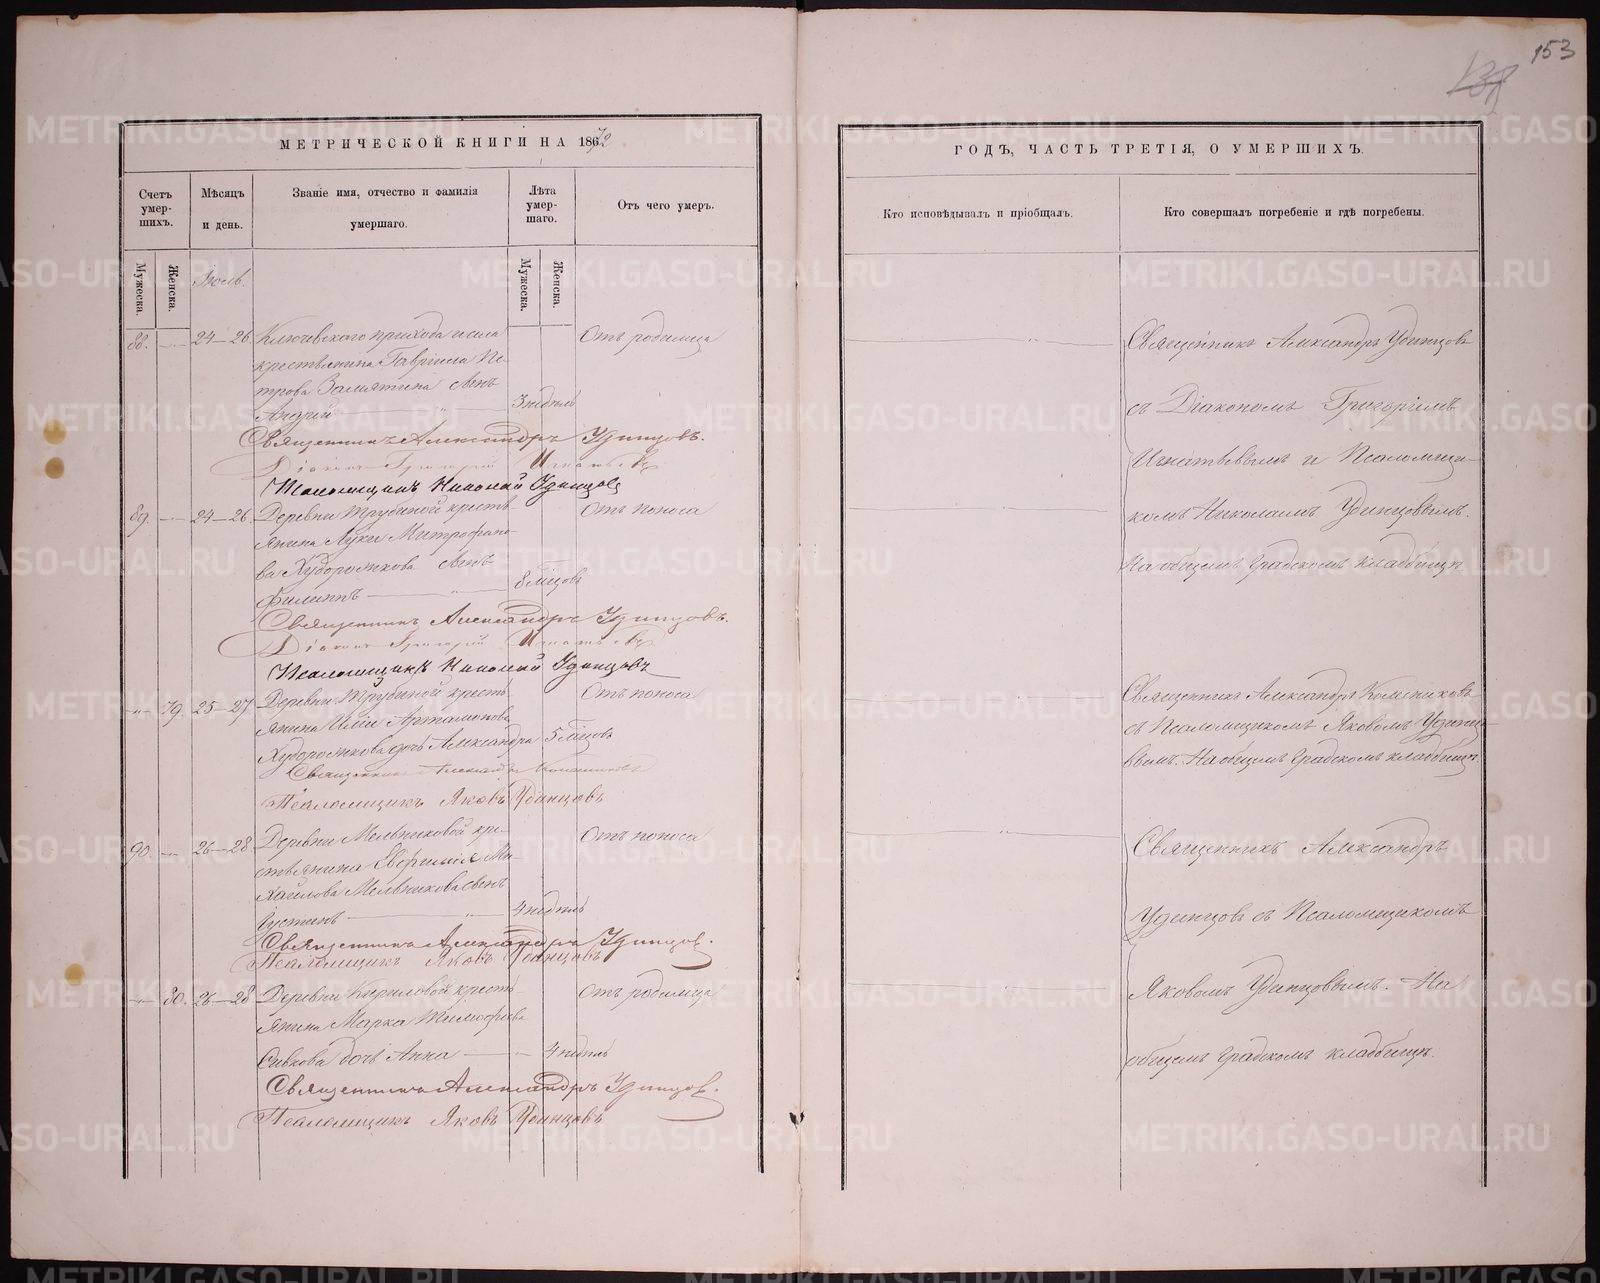 153
МЕТРИЧЕСКОЙ КНИГИ НА 1872
ГОДЪ, ЧАСТЬ ТРЕТІЯ, О УМЕРШИХЪ.
Счетъ умер-
шихъ.
Мѣсяцъ
и день.
Званіе имя, отчество и фамилія
умершаго.
Лѣта
умер-
шаго.
Отъ чего умеръ.
Кто исповѣдывалъ и пріобщалъ.
Кто совершалъ погребеніе и гдѣ погребены.
Мужеска.
Женска.
Іюль.
Мужеска.
Женска.
88. 24–26 Ключевского прихода и села Отъ родимца
крестьянина Гавріила Пе-
трова Замятина сынъ
Андрей 3 недѣль
Священникъ Александръ Удинцовъ.
Діаконъ Григорій Игнатьевъ
Псаломщикъ Николай Удинцовъ
89. 24–26 Деревни Трубиной кресть- Отъ поноса
янина Луки Митрофано-
ва Худорожкова сынъ
Филиппъ 8 мѣсцовъ
Священникъ Александръ Удинцовъ.
Діаконъ Григорій Игнатьевъ
Псаломщикъ Николай Удинцовъ
79. 25–27 Деревни Трубиной кресть- Отъ поноса
янина Иліи Артамонова
Худорожкова дочь Александра 5 мѣсцовъ
Священникъ Александръ
Псаломщикъ Яковъ Удинцовъ
90. 26–28 Деревни Мельниковой кре- Отъ поноса
стьянина Евфимія Ми-
хайлова Мельникова сынъ
Іустинъ 4 недѣль
Священникъ Александръ Удинцовъ.
Псаломщикъ Яковъ Удинцовъ
80. 26–28 Деревни Кириловой кресть- Отъ родимца
янина Марка Тимофѣева
Сивкова дочь Анна 4 недѣль
Священникъ Александръ Удинцовъ.
Псаломщикъ Яковъ Удинцовъ
Священникъ Александръ Удинцовъ
съ Діакономъ Григоріемъ
Игнатьевымъ и Псаломщи-
комъ Николаемъ Удинцовымъ.
На общемъ градскомъ кладбищѣ
Священникъ Александръ
съ Псаломщикомъ Яковомъ Удинцо-
вымъ. На общемъ градскомъ кладбищѣ.
Священникъ Александръ
Удинцовъ съ Псаломщикомъ
Яковомъ Удинцовымъ. На
общемъ градскомъ кладбищѣ.
METRIKI.GASO-URAL.RU